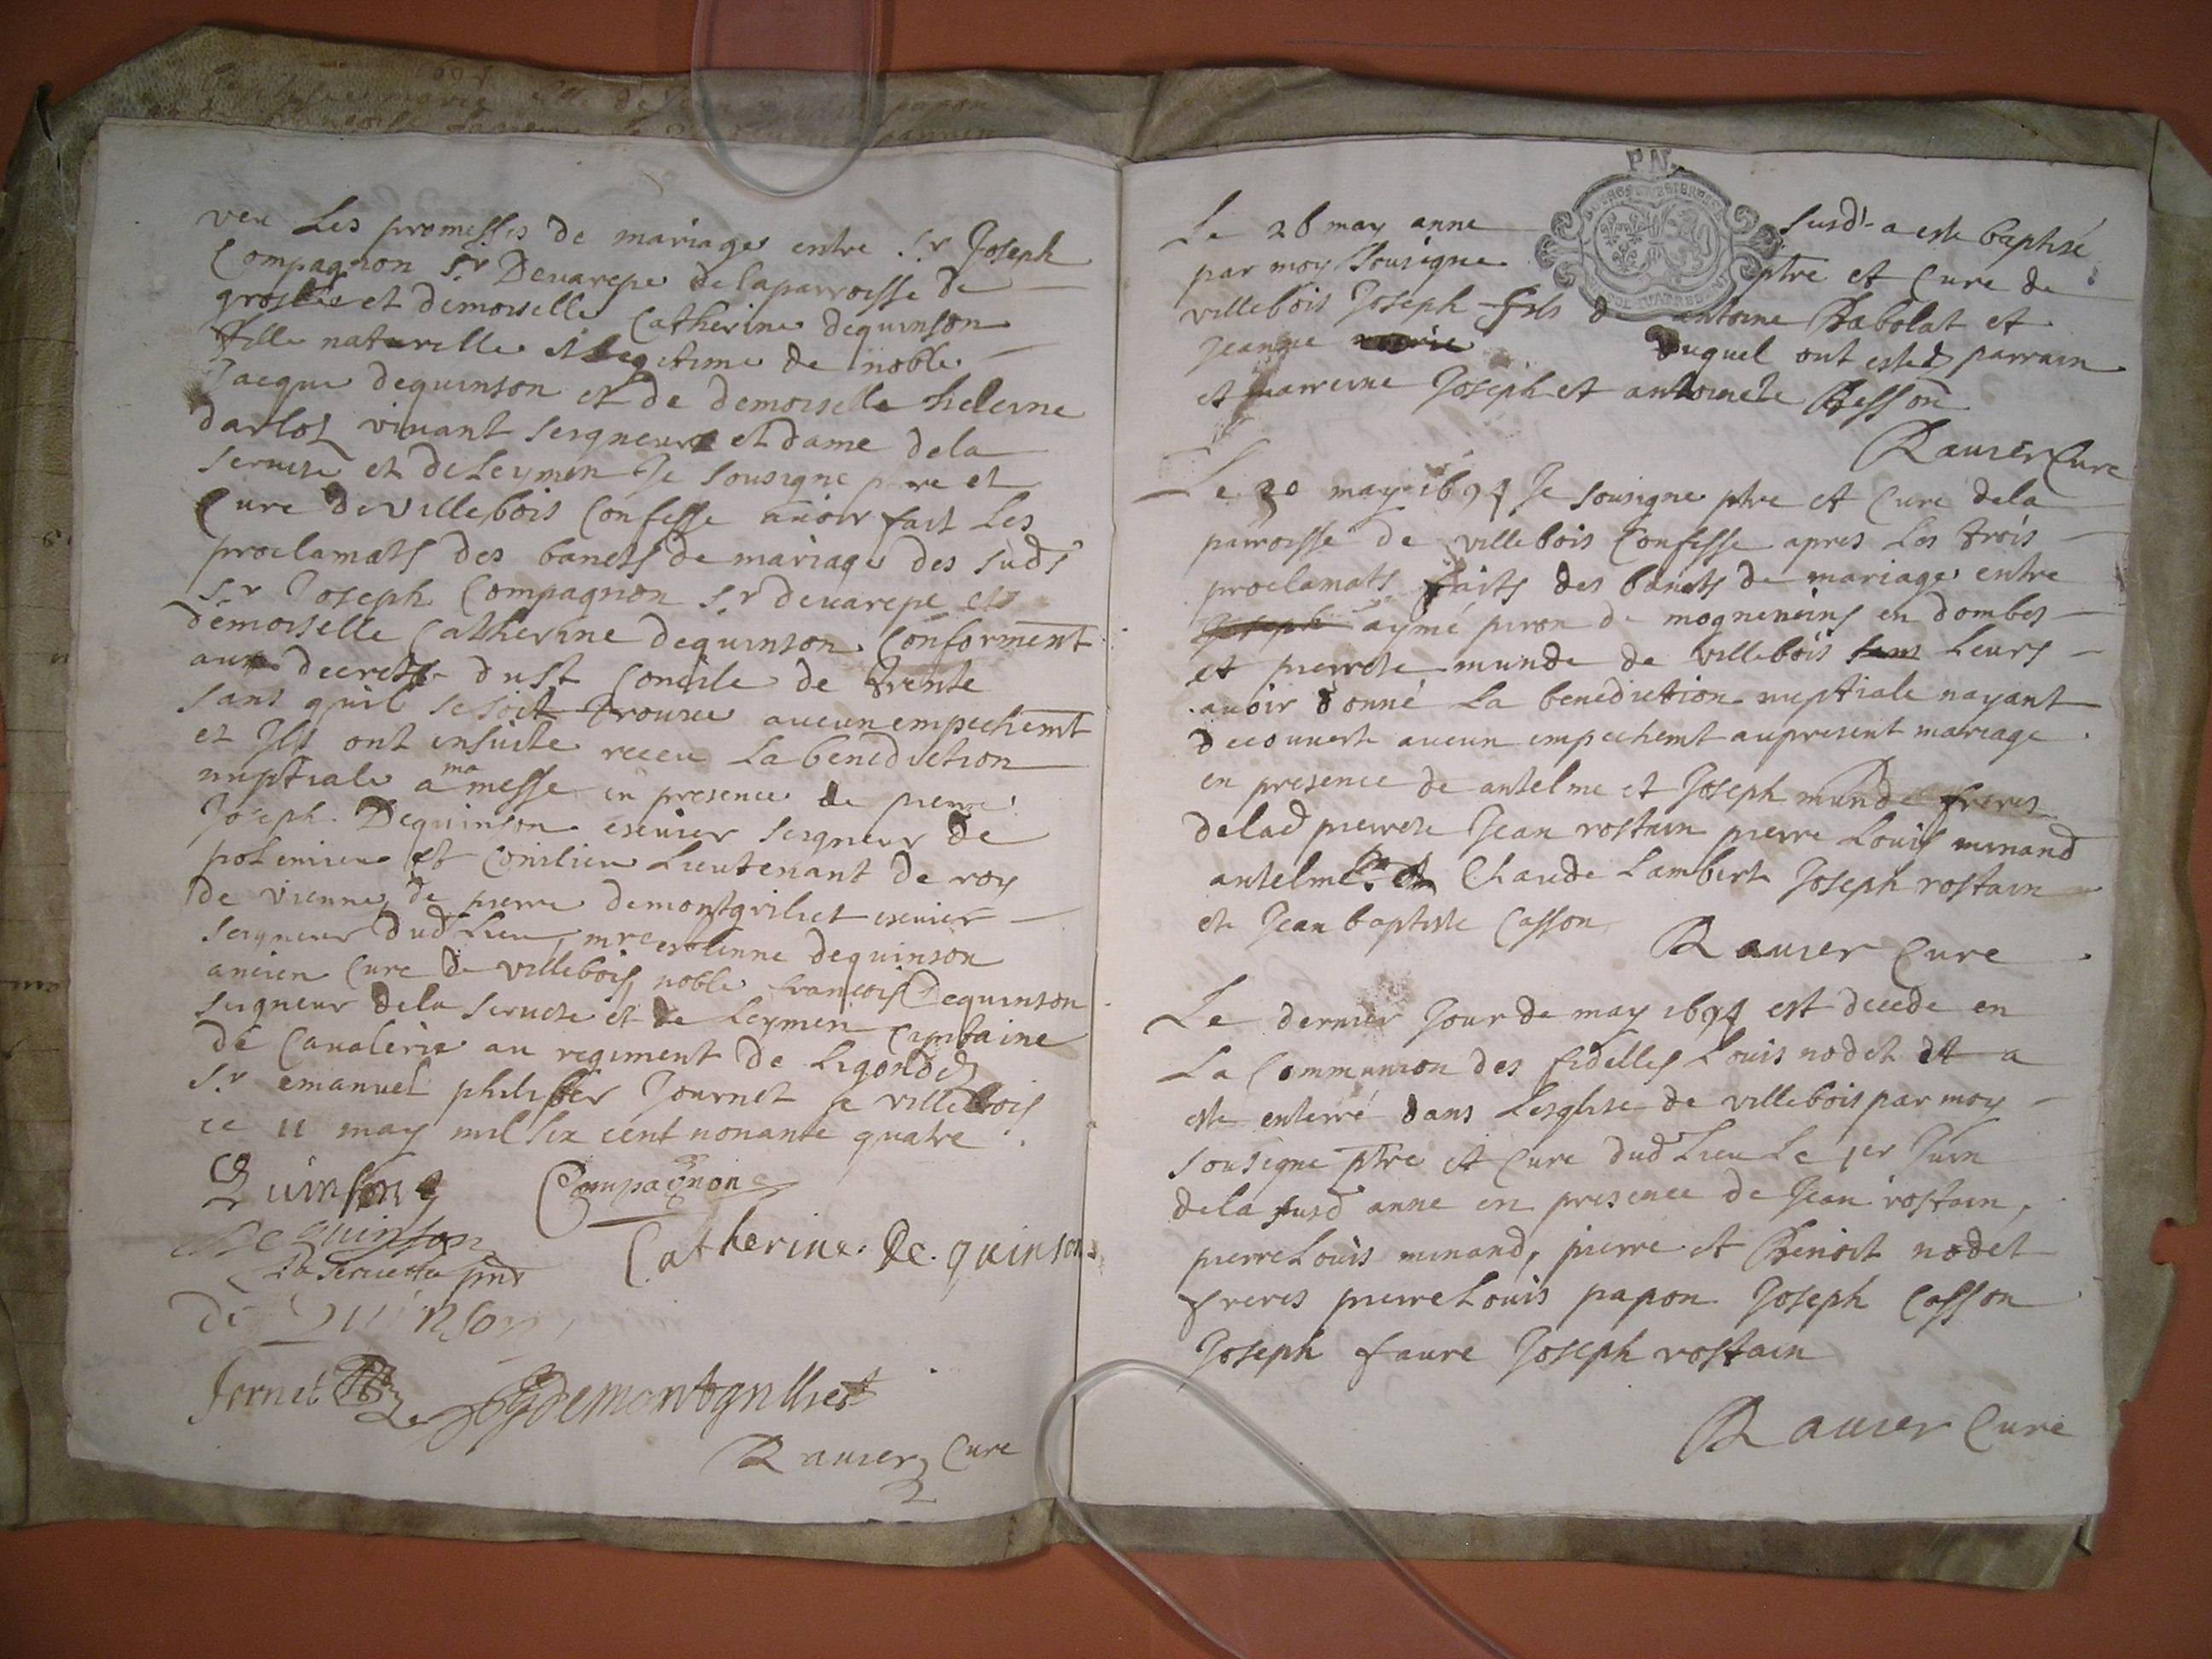 veu les promesses de mariage entre Sr Joseph
Compagnon Sr Devarepe de la parroisse de
groslée et demoiselle Catherine dequinson
fille naturelle et legetime de noble
Jacque dequinson et de demoiselle heleine
darloz vivant seigneurs et dame dela
servete et de Leymen Je sousigne ptre et
Cure de villebois Confesse avoir fait les
proclamats des bancts de mariage des sudts
Sr Joseph Compagnon Sr devarepe et
demoiselle Catherine dequinson Conforment
aux decrets du St Concile de trente
sans quil se soit trouvee aucun empechemt
et Ils ont ensuite receu la benediction
nuptiale a ma messe en presence de pierre
Joseph Dequinson escuier seigneur de
polenieu et Conilieu Lieutenant de roy
de vienne, de pierre demontgriliet escuier
seigneur dud Lieu, mre estienne dequinson
ancien Cure de villebois, noble francois Dequinson
seigneur dela servete et de Leymen Capitaine
de Cavalerie au regiment de Ligondes
Sr emanuel philiber Journet a villebois
ce 11 may mil six cent nonante quatre
Quinson Compagnon
De quinson
La servette pnt Catherine De quinson
de Quinson
Jornet demontgrilliet
Ravier Cure
P.N.
Le 26 may anne susdt a este baptisé
par moy sousigne ptre et Cure de
villebois Joseph fils d antoine Babolat et
Jeanne duquel ont estes parrain
et marreine Joseph et antoinete Besson
Ravier Cure
Le 30 may 1694 Je sousigne ptre et Cure dela
parroisse de villebois Confesse apres les trois
proclamats faits des bancts de mariage entre
Joseph aymé piron de mogneneins en dombes
et pierrete munde de villebois sans leurs
avoir donné la benediction nuptiale nayant
decouvert aucun empechemt au present mariage
en presence de antelme et Joseph munde freres
delad pierrete Jean rostain pierre Louis minand
antelme et Claude Lambert Joseph rostain
et Jean baptiste Casson
Ravier Cure
Le dernier Jour de may 1694 est decede en
La Communion des fidelles Louis nodet et a
este enterré dans Lesglise de villebois par moy
sousigne ptre et Cure dud Lieu Le 1er Juin
dela susd anne en presence de Jean rostain,
pierre Louis minand, pierre et Benoit nodet
freres pierre Louis papon Joseph Casson
Joseph faure Joseph rostain
Ravier Cure